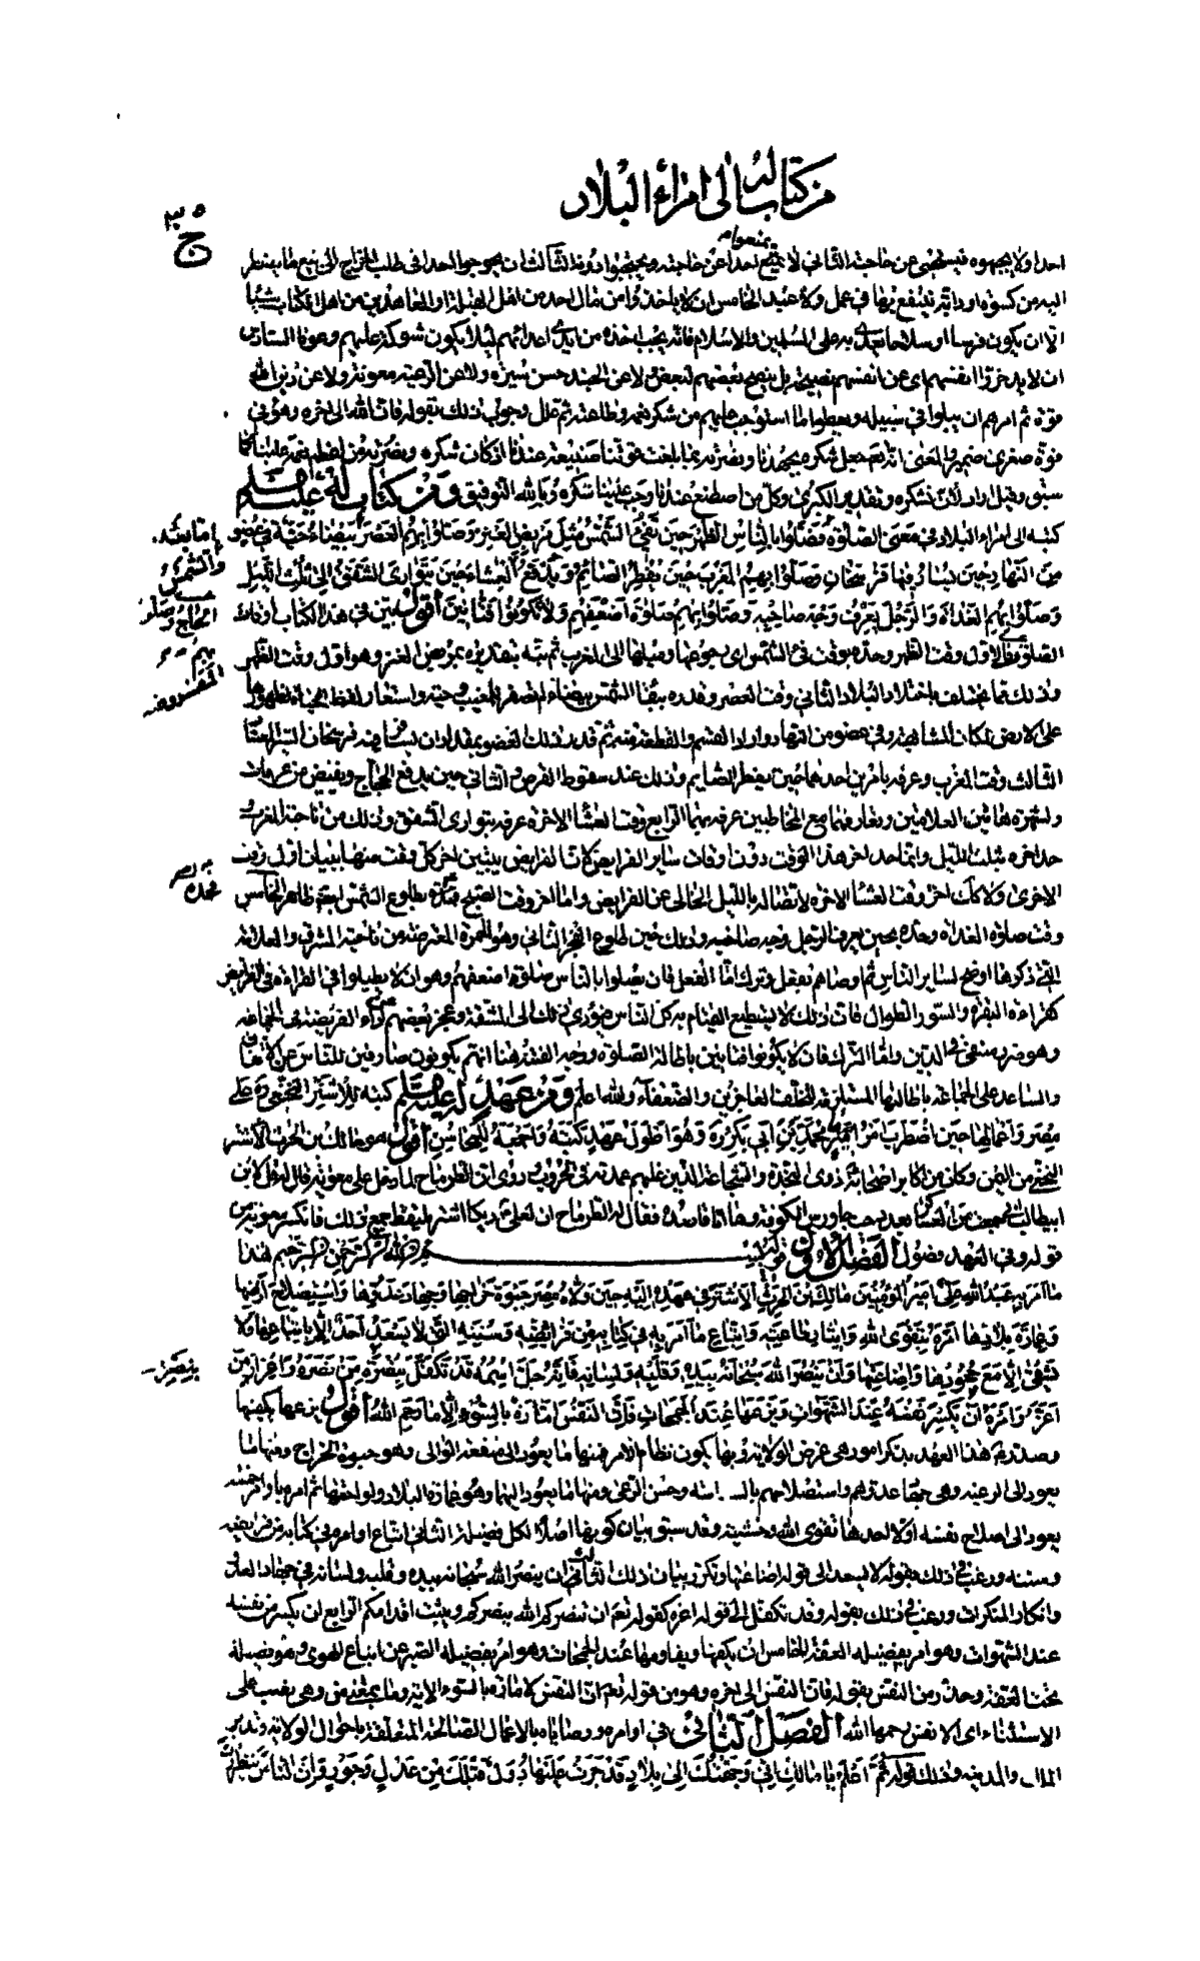 من كتاب له الى امراء البلاد
ج ٥
احدا ولا يجبهوه فيستحيى عن حاجته الثانى لا يمنع احدا عن حاجته و الثالث ان لا يحوجوا احدا فى طلب الخراج الى بيع ما يضطر
اليه من كسوة او دابة ينتفع بها فى عمل ولا عبد الخامس ان لا ياخذوا من مال احد من اهل القبلة او المعاهدين من اهل الكتاب شيئا
الا ان يكون فرسا او سلاحا يعدى به على المسلمين والاسلام فانه يجب اخذه من ايدى اعدائهم لئلا يكون شوكة عليهم وعونا السادس
ان لا يدخروا انفسهم اى عن انفسهم نصيحة بل ينصح بعضهم لبعض ولا عن الجند حسن سيرة ولا عن الرعية معونة ولا عن دين الله
قوة ثم امرهم ان يبلوا فى سبيله ويعطوا ما استوجب عليهم من شكر نعمه وطاعته ثم علل وجوب ذلك بقوله فان الله الى اخره وهو فى
قوة صغرى ضمير والمعنى انه تعم جعل شكره بجهدنا ونصرته بما بلغت قوتنا صنيعة عندنا اذ كان شكره ونصرته من اعظم نعمه علينا كما
سبق وقيل اراد لان نشكره وتقدير الكبرى وكل من اصطنع عندنا وجب علينا شكره وبالله التوفيق ومن كتاب له عليه السلم
كتبه الى امراء البلاد فى معنى الصلوة فصلوا بالناس الظهر حين تفىء الشمس مثل مربض العنز وصلوا بهم العصر بيضاء حية فى عضو
اما بعد
من النهار حين يسار فيها فرسخان وصلوا بهم المغرب حين يفطر الصائم ويدفع العشاء حين يتوارى الشفق الى ثلث الليل
والشمس
وصلوا بهم الغداة والرجل يعرف وجه صاحبه وصلوا بهم صلوة اضعفهم ولا تكونوا فتانين اقول بين فى هذا الكتاب اوقات
الحاج وصلوا
بهم
الصلوة فالاول وقت الظهر وحده بوقت فىء الشمس اى رجوعها وميلها الى المغرب ثم نبه بتقديره بمربض العنز وهو اول وقت الظهر
المفروضه
وذلك مما يختلف باختلاف البلاد الثانى وقت العصر وقدره ببقاء الشمس بيضاء لم تصفر للمغيب وحية واستعار لفظ الحياة لظهورها
على الارض لمكان المشابهة وفى عضو من النهار واراد القسم والقطعة منه ثم قدر ذلك العضو بمقدار ان يسار فيه فرسخان السير المعتاد
الثالث وقت المغرب وعرفه بامرين احدهما حين يفطر الصايم وذلك عند سقوط القرص والثانى حين يدفع الحاج ويفيض من عرفات
ولشهرة هاتين العلامتين وتعارفهما مع المخاطبين عرفه بهما الرابع وقت العشاء الاخرة عرفه بتوارى الشفق وذلك من ناحية المغرب
حد اخره بثلث الليل وانما حد اخر هذا الوقت دون اوقات ساير الفرايض لان الفرايض يتبين اخر كل وقت منها ببيان اول وقت
الاخرى ولا كك اخر وقت العشاء الاخرة لاتصاله بالليل الخالى عن الفرايض واما اخر وقت الصبح فحده بطلوع الشمس ايضا ظاهر الخامس
وقت صلوة الغداة وحده بحين يعرف الرجل وجه صاحبه وذلك حين طلوع الفجر الثانى وهو الحمرة المعترضة من ناحية المشرق والعلامة
التى ذكرها اوضح لساير الناس ثم وصاهم بفعل وترك اما الفعل فان يصلوا بالناس صلوة اضعفهم وهو ان لا يطيلوا فى القراءة فى الفرايض
كقراءة البقرة والسور الطوال فان ذلك لا يستطيع القيام به كل الناس فيؤدى ذلك الى المشقة وعجز بعضهم عن اداء الفريضة فى الجماعة
وهو ضرر منفى فى الدين واما الترك فان لا يكونوا فتانين باطالة الصلوة ووجه الفتنة هنا انهم يكونون صارفين للناس عن الاتفاق
والتساعد على الجماعة باطالتها المستلزمة لتخلف العاجزين والضعفاء والله اعلم ومن عهد له عليه السلم كتبه للاشتر النخعى ره على
مصر واعمالها حين اضطرب امر اميره محمد بن ابى بكر ره وهو اطول عهد كتبه واجمعه للمحاسن اقول هو مالك بن الحرث الاشتر
النخعى من اليمن وكان من اكابر اصحابه ذوى النجدة والشجاعة الذين عليهم عمدته فى الحروب روى ان الطرماح لما دخل على معوية قال له قل لابن
ابيطالب انى جمعت من العساكر بعدد حب جاورس الكوفة وها انا قاصده فقال له الطرماح ان لعلى ديكا اشتر يلتقط جميع ذلك فانكسر معوية من
قوله وفى العهد فصول الفصل الاول قوله بسم الله الرحمن الرحيم هذا
ما امر به عبد الله على امير المؤمنين مالك بن الحرث الاشتر فى عهده اليه حين ولاه مصر جبوة خراجها وجهاد عدوها واستصلاح اهلها
وعمارة بلادها امره بتقوى الله وايثار طاعته واتباع ما امر به فى كتابه من فرائضه وسننه التى لا يسعد احد الا باتباعها ولا
يشقى الا مع جحودها واضاعتها وان ينصر الله سبحانه بيده وقلبه ولسانه فانه جل اسمه قد تكفل بنصرة من نصره واعزاز من
اعزه وامره ان يكسر نفسه عند الشهوات ويزعها عند الجمحات فان النفس امارة بالسوء الا ما رحم الله اقول يزعها يكفها
وصدر هذا العهد بذكر امور هى غرض الولاية وبها يكون نظام الامر فمنها ما يعود الى منفعة الوالى وهو جبوة الخراج ومنها ما
يعود الى الرعية وهى جهاد عدوهم واستصلاحهم بالسياسة وحسن الرعى ومنها ما يعود اليهما وهو عمارة البلاد ولواحقها ثم امره باوامر خمسة
يعود الى اصلاح نفسه اولا احدها تقوى الله وخشيته وقد سبق بيان كونها اصلا لكل فضيلة الثانى اتباع اوامره فى كتابه من فرايضه
وسننه ورغب فى ذلك بقوله لا يسعد الى قوله اضاعتها وتكرر بيان ذلك الثالث ان ينصر الله سبحانه بيده وقلبه ولسانه فى جهاد العدو
وانكار المنكرات ورغب فى ذلك بقوله وقد تكفل الى قوله اعزه كقوله تعم ان تنصروا الله ينصركم ويثبت اقدامكم الرابع ان يكسر من نفسه
عند الشهوات وهو امر بفضيلة العفة الخامس ان يكفها ويقاومها عند الجمحات وهو امر بفضيلة الصبر عن اتباع الهوى وهو فضيلة
تحت العفة وحذر من النفس بقوله فان النفس الى اخره وهو من قوله تعم ان النفس لامارة بالسوء الاية وما بمعنى من وهى نصب على
الاستثناء اى الا نفس رحمها الله الفصل الثانى فى اوامره ووصاياه بالاعمال الصالحة المتعلقة باحوال الولاية وتدبير
الملك والمدينة وذلك قوله ثم اعلم يا مالك انى وجهتك الى بلاد قد جرت عليها دول قبلك من عدل وجور وان الناس ينظرون